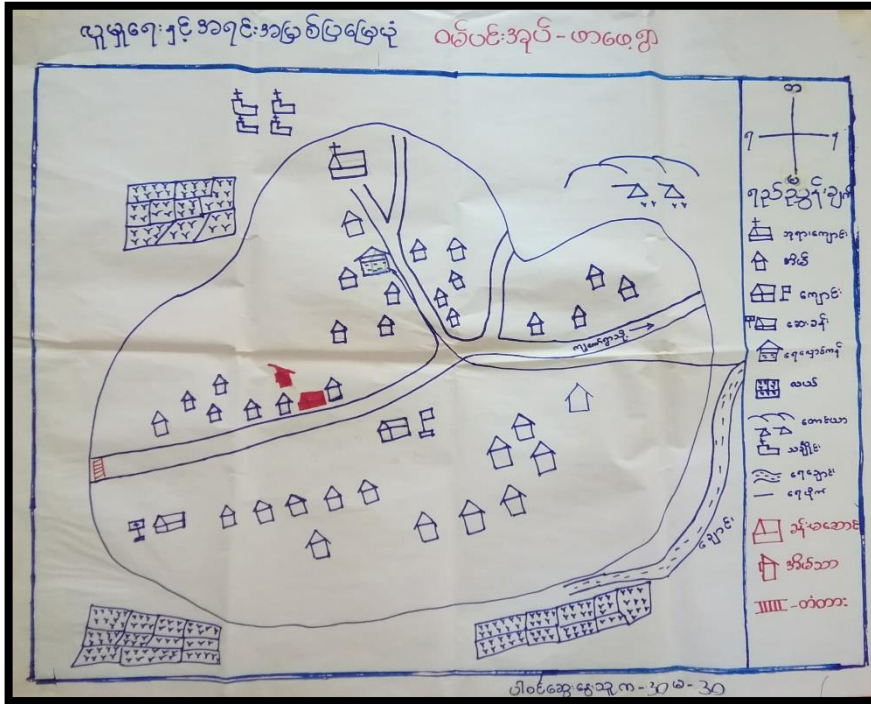 လူမှုရေးနှင့်အရင်းအမြစ်ပြမြေပုံ ဝမ်ပင်းအုပ်-ဖာဖေ့ရွာ
တ
ရ
မ
ရည်ညွှန်းချက်
ဘုရားကျောင်း
အိမ်
ကျောင်း
ဆေးခန်း
ရေလှောင်ကန်
လယ်
တောင်ယာ
သင်္ချိုင်း
ရေချောင်း
ရေပိုက်
ခန်းမဆောင်
အိမ်သာ
-တံတား
ချောင်း
ပါဝင်ဆွေးနွေးသူ က-၃၁ မ-၃၀